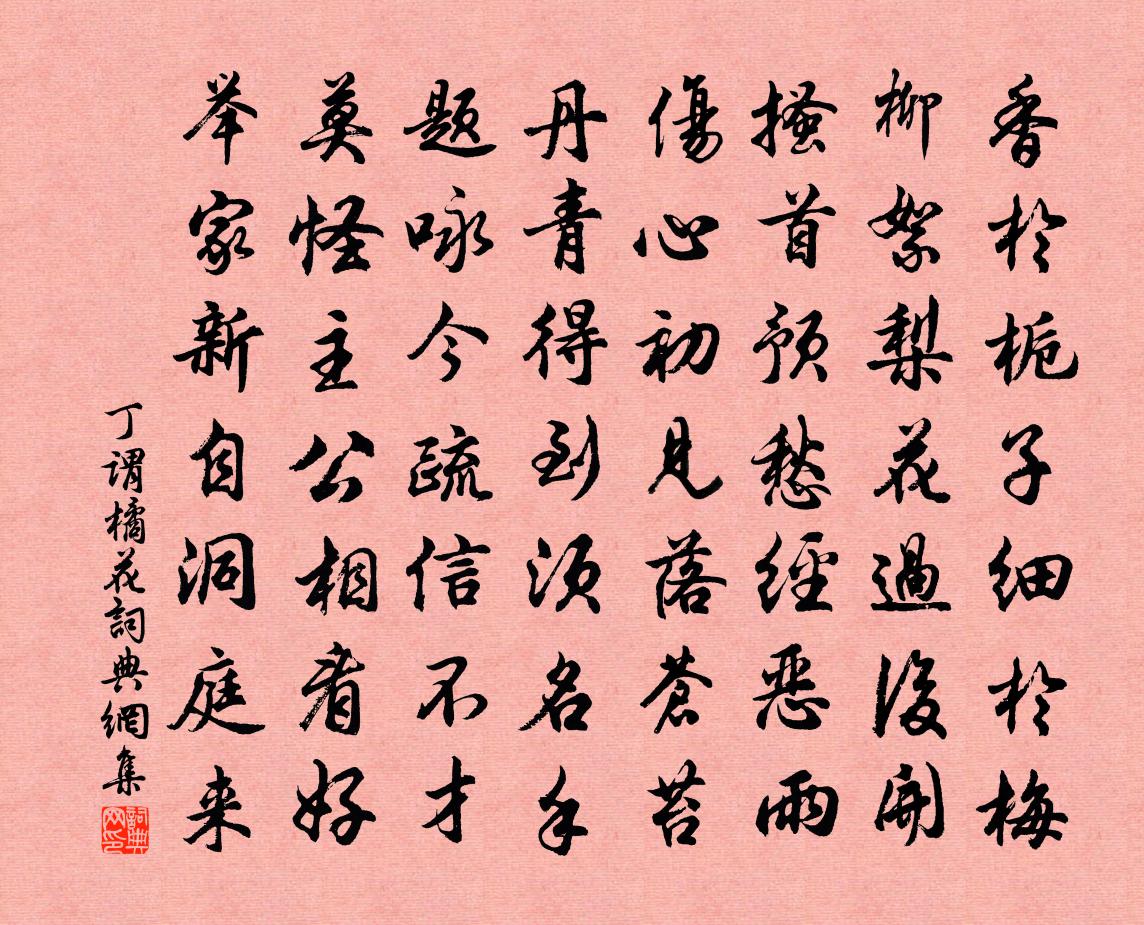 香於栀子細於梅
柳絮梨花過後開
搔首預愁經惡雨
傷心初見落蒼苔
丹青得到須名手
題咏今疏信不才
莫怪主公相看好
举家新自洞庭来
丁謂橘花詞典網集
詞典网印